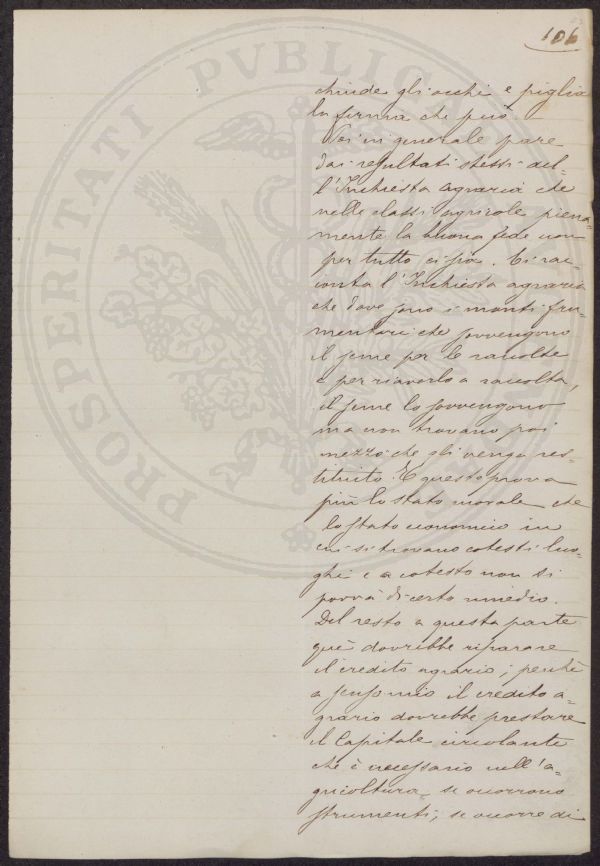 106
PROSPERITATI PVBLICAE
chiude gli occhi e piglia
la firma che può.
Poi in generale pare
dai resultati stessi del-
l'Inchiesta agraria che
nelle classi agricole piena-
mente la buona fede non
per tutto ci sia. Ci rac-
conta l'Inchiesta agraria
che dove sono i monti fru-
mentari che sovvengono
il seme per le raccolte
e per riaverlo a raccolta,
il seme lo sovvengono
ma non trovano poi
mezzo che gli venga res-
tituito. E questo prova
più lo stato morale che
lo stato economico in
cui si trovano cotesti luo-
ghi e a cotesto non si
porrà di certo rimedio.
Del resto a questa parte
quì dovrebbe riparare
il credito agrario; perchè
a senso mio il credito a-
grario dovrebbe prestare
il Capitale circolante
che è necessario nell'a-
gricoltura se occorrono
strumenti, se occorre di